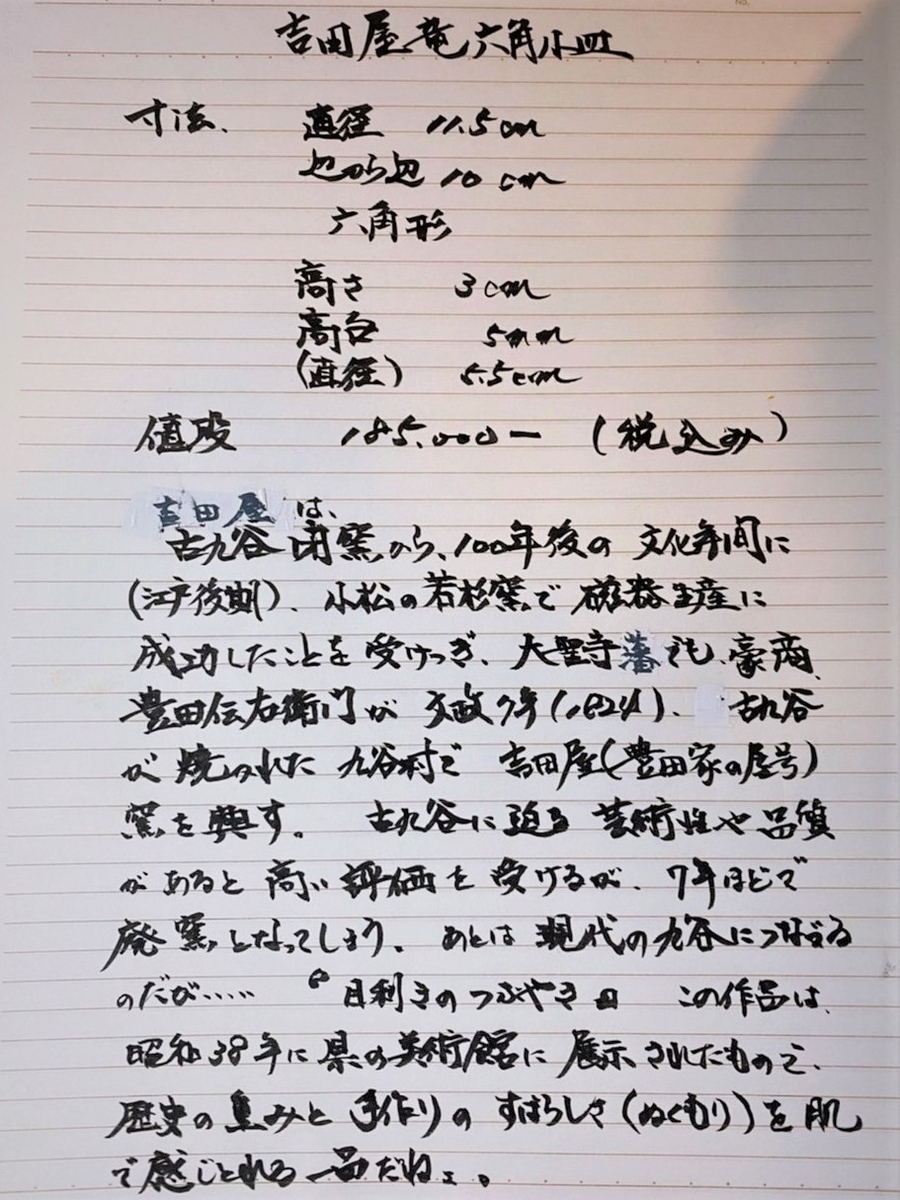 吉田屋竜六角小皿
寸法、 直径 11.5cm
辺から辺 10cm
六角形
高さ 3cm
高台 5mm
(直径) 5.5cm
値段 185.000ー (税込み)
吉田屋は、
古九谷閉窯から、100年後の文化年間に
(江戸後期)、小松の若杉窯で磁器生産に
成功したことを受けつぎ、大聖寺藩でも、豪商、
豊田伝右衛門が文政7年(1824)、古九谷
が焼かれた九谷村で吉田屋(豊田家の屋号)
窯を興す。古九谷に迫る芸術性や品質
があると高い評価を受けるが、7年ほどで
廃窯となってしまう。あとは現代の九谷につながる
のだが…… 『目利きのつぶやき』 この作品は、
昭和38年に県の美術館に展示されたもので、
歴史の重みと手作りのすばらしさ(ぬくもり)を肌
で感じとれる一品だね。